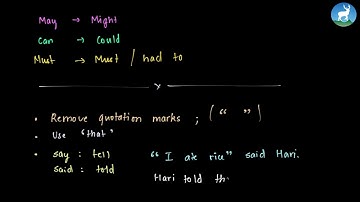 May → Might
Can → Could
Must → Must / had to
x
• Remove quotation marks ; (" ")
• Use 'that'
• say : tell
said : told
"I ate rice" said Hari.
Hari told th